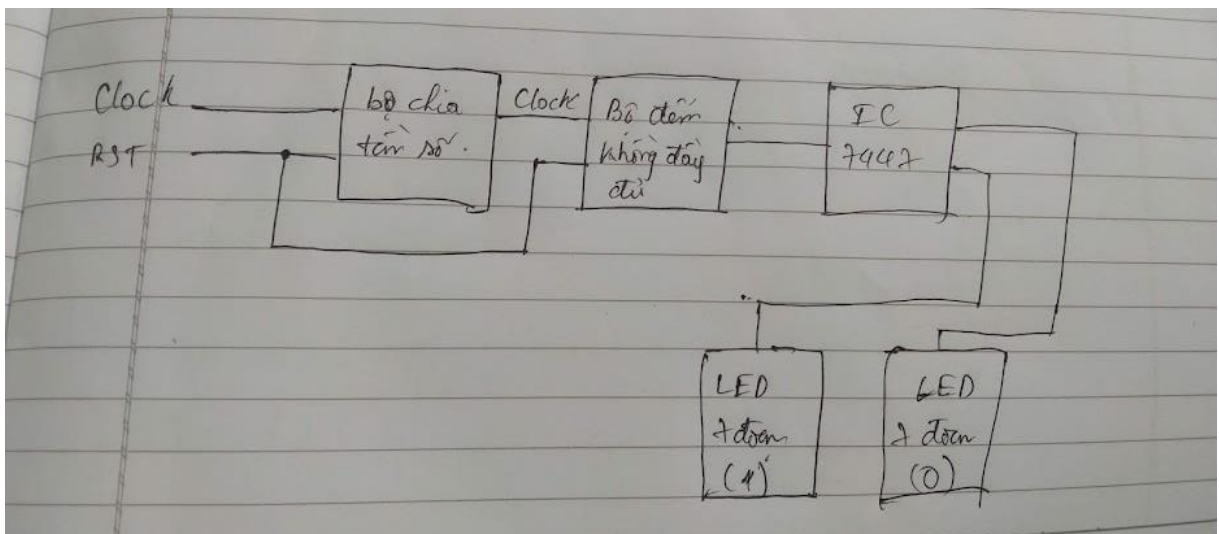 Clock
RST
bộ chia
tần số.
Clock
Bộ đếm
không đầy
đủ
IC
7447
LED
7 đoạn
(1)
LED
7 đoạn
(0)